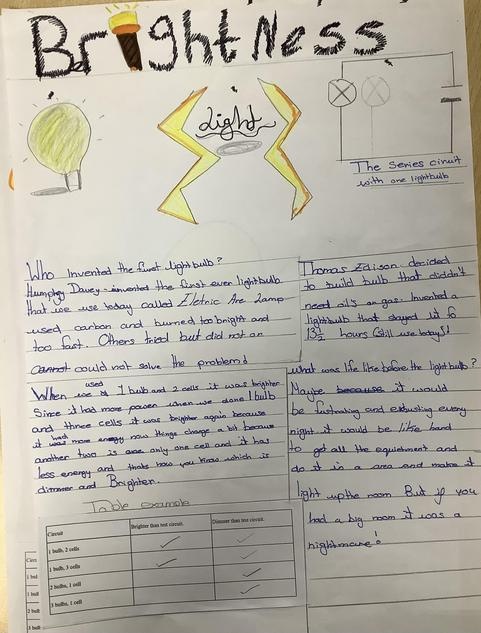 Brightness
Light
The Series ciruit
with one lightbulb
Who invented the first lightbulb?
Humphey Davey - invented the first ever lightbulb
that we use today called Eletric Arc Lamp
used carbon and burned too bright and
too fast. Others tried but did not an
cannot could not solve the problem!
Thomas Edison - decided
to build bulb that diddn't
need oils or gas. Invented a
lightbulb that stayed lit for
13½ hours (still use today)!
When we used 1 bulb and 2 cells it was brighter
Since it had more power when we done 1 bulb
and three cells it was brighter again because
it had more energy now things change a bit because
another two is are only one cell and it has
less energy and thats how you know which is
dimmer and Brighter.
what was life like before the light bulb?
Maybe because it would
be fustrating and exhusting every
night it would be like hard
to get all the equietment and
do it in a area and make it
light up the room But if you
had a big room it was a
nightmare!
Table example
Circuit Brighter than test circuit. Dimmer than test circuit.
1 bulb, 2 cells
1 bulb, 3 cells
2 bulbs, 1 cell
3 bulbs, 1 cell
Circu
1 bul
1 bul
2 bulb
3 bul